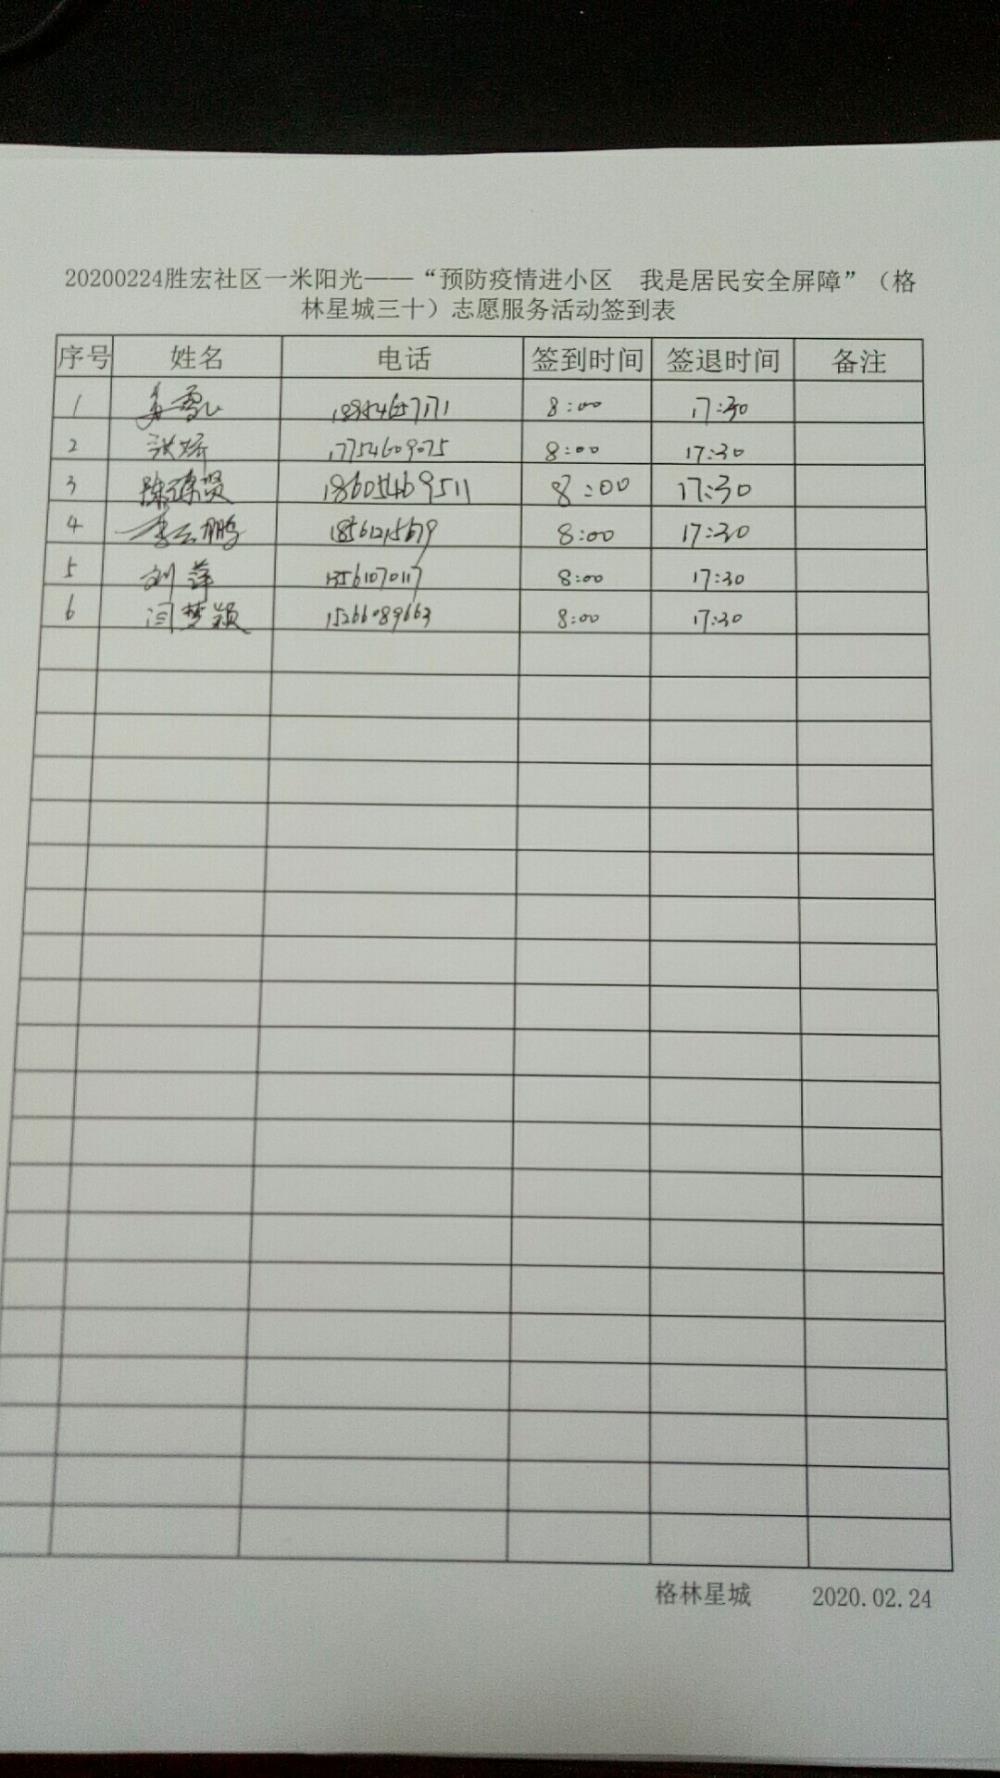 20200224胜宏社区一米阳光——“预防疫情进小区 我是居民安全屏障”（格
林星城三十）志愿服务活动签到表
序号 姓名 电话 签到时间 签退时间 备注
1 8:00 17:30
2 张娇 17754609075 8:00 17:30
3 18605469511 8:00 17:30
4 李云鹏 18561215679 8:00 17:30
5 刘萍 13561070117 8:00 17:30
6 闫梦颖 15266089663 8:00 17:30
格林星城 2020.02.24